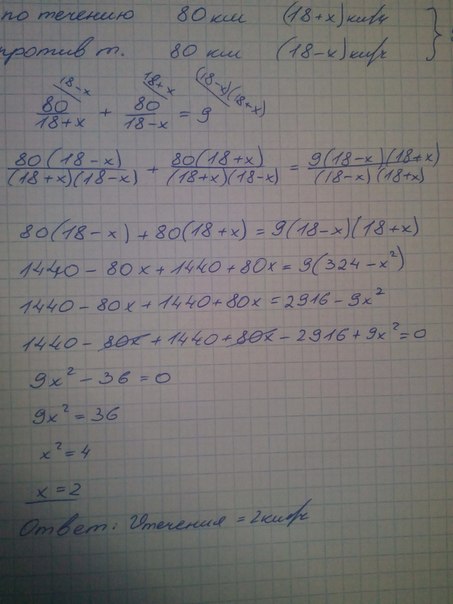 по течению 80 км (18+x) км/ч
против т. 80 км (18-x) км/ч
18-x 18+x (18-x)(18+x)
80/(18+x) + 80/(18-x) = 9
80(18-x)/((18+x)(18-x)) + 80(18+x)/((18+x)(18-x)) = 9(18-x)(18+x)/((18-x)(18+x))
80(18-x)+80(18+x)=9(18-x)(18+x)
1440-80x+1440+80x=9(324-x²)
1440-80x+1440+80x=2916-9x²
1440-80x+1440+80x-2916+9x²=0
9x²-36=0
9x²=36
x²=4
x=2
Ответ: Vтечения = 2км/ч